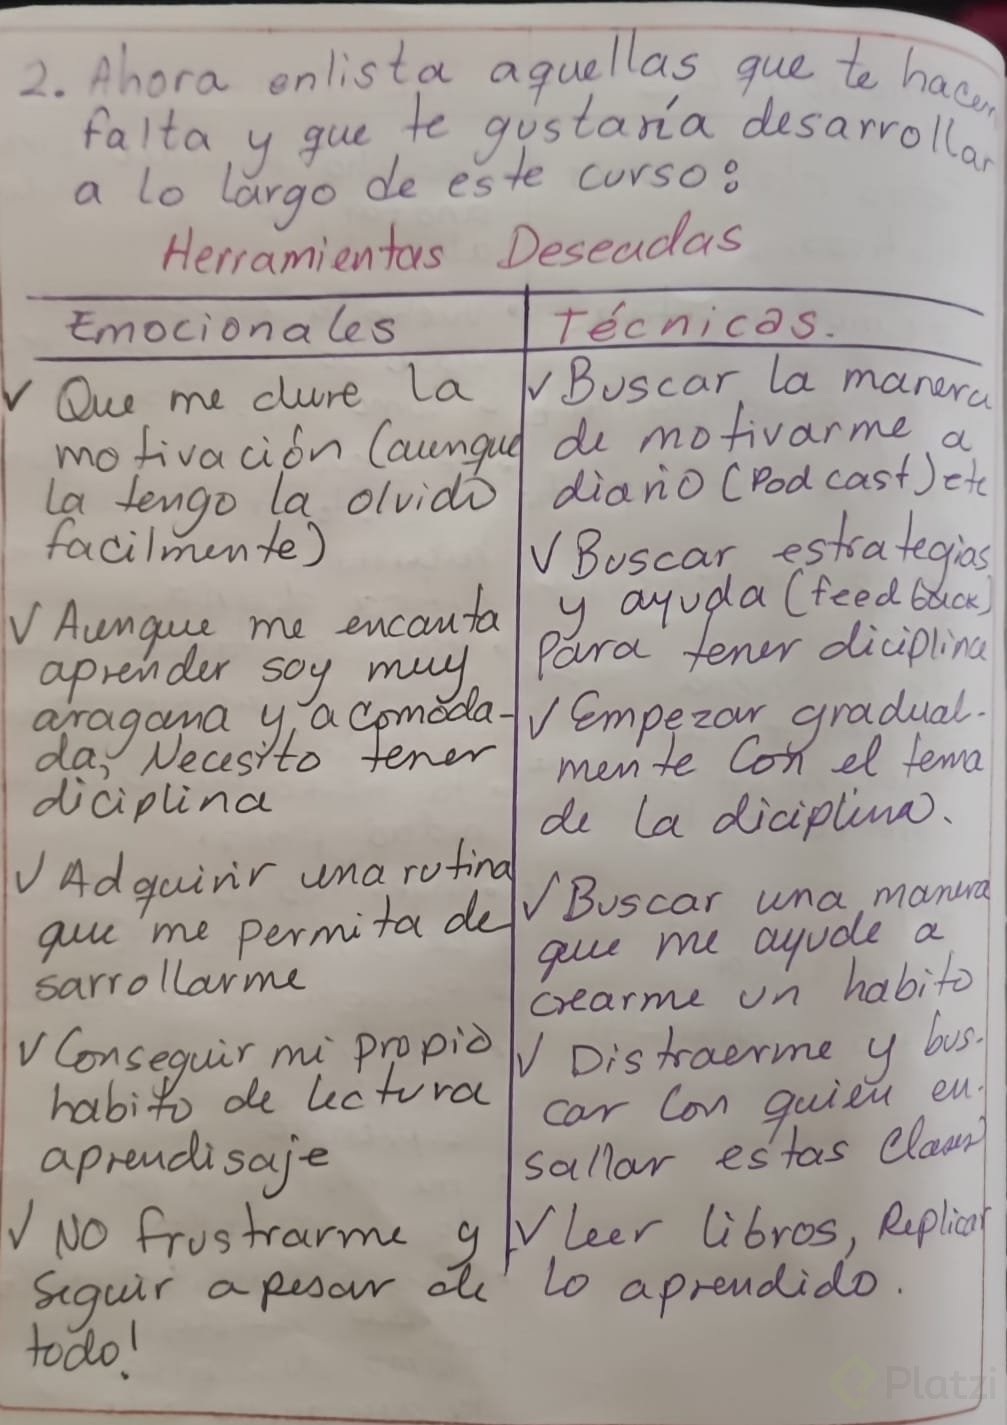 2. Ahora enlista aquellas que te hacen
falta y que te gustaría desarrollar
a lo largo de este curso:
Herramientas Deseadas
Emocionales
✓ Que me dure la
motivación (aunque
la tengo la olvido
facilmente)
✓ Aunque me encanta
aprender soy muy
aragana y acomoda-
da, Necesito tener
diciplina
✓ Adquirir una rutina
que me permita de
sarrollarme
✓ Conseguir mi propio
habito de lectura
aprendisaje
✓ No frustrarme y
Seguir a pesar de
todo!
Técnicas.
✓ Buscar la manera
de motivarme a
diario (Pod cast) etc
✓ Buscar estrategias
y ayuda (feed back)
Para tener diciplina
✓ Empezar gradual-
mente Con el tema
de la diciplina.
✓ Buscar una manera
que me ayude a
crearme un habito
✓ Distraerme y bus-
car Con quien en-
sallar estas Clases
✓ leer libros, Replicar
lo aprendido.
Platzi